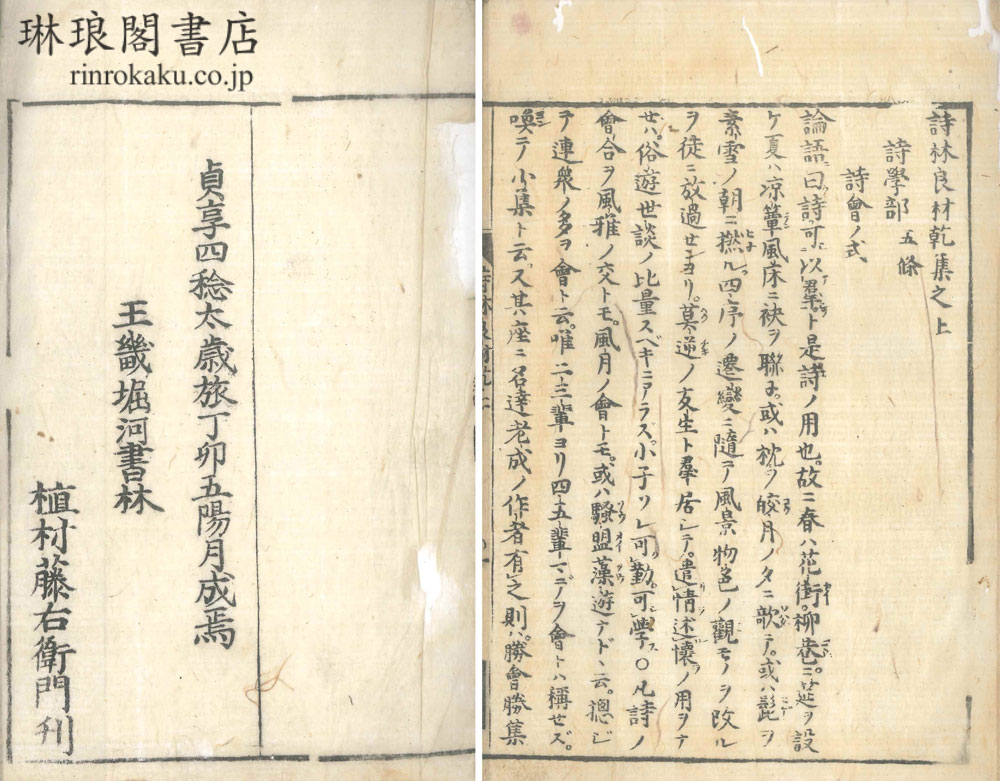 琳琅閣書店
rinrokaku.co.jp
詩林良材乾集之上
詩學部 五條
詩會ノ式
論語曰詩可以羣ト是詩ノ用也故ニ春ハ花街柳巷ニ莚ヲ設
ケ夏ハ凉簟風床ニ袂ヲ聯子或ハ枕ヲ皎月ノタニ歌テ或ハ髭ヲ
素雪ノ朝ニ撚ル四序ノ遷變ニ隨テ風景物色ノ觀モノヲ改ル
ヲ徒ニ放過センヨリ莫逆ノ友生ト羣居シテ遣情述懷ノ用ヲナ
セハ俗遊世談ノ比量スベキニアラス小子ソレ可勤可學〇凡詩ノ
會合ヲ風雅ノ交トモ風月ノ會トモ或ハ騷盟藻遊ナドヽ云總ジ
テ連衆ノ多ヲ會ト云唯二三輩ヨリ四五輩マデヲ會トハ稱セズ
喚テ小集ト云又其座ニ名達老成ノ作者有之則ハ勝會勝集
貞享四稔太歳旅丁卯五陽月成焉
王畿堀河書林
植村藤右衛門刊